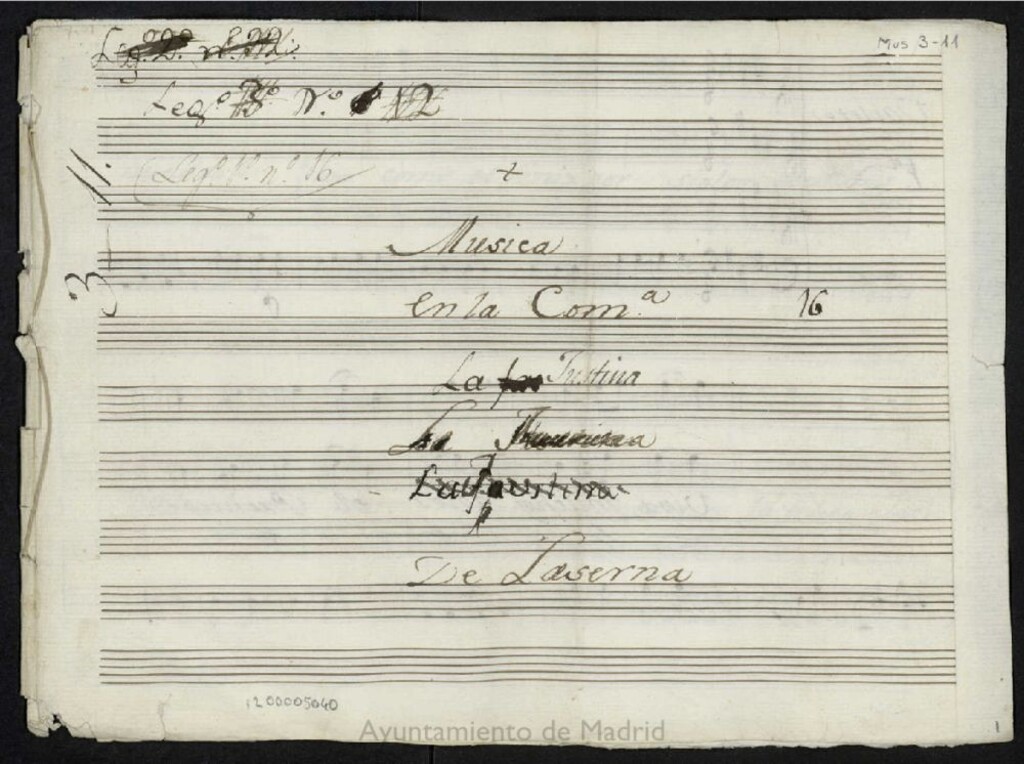 Mus 3-11
Leg.º 2.º n.º
Leg.º 3º N.º 12
11.
Leg.º 1.º n.º 16
+
Musica
3
en la Com.ª 16
La Justina
La
La Faustina
De Laserna
1200005040
Ayuntamiento de Madrid
1